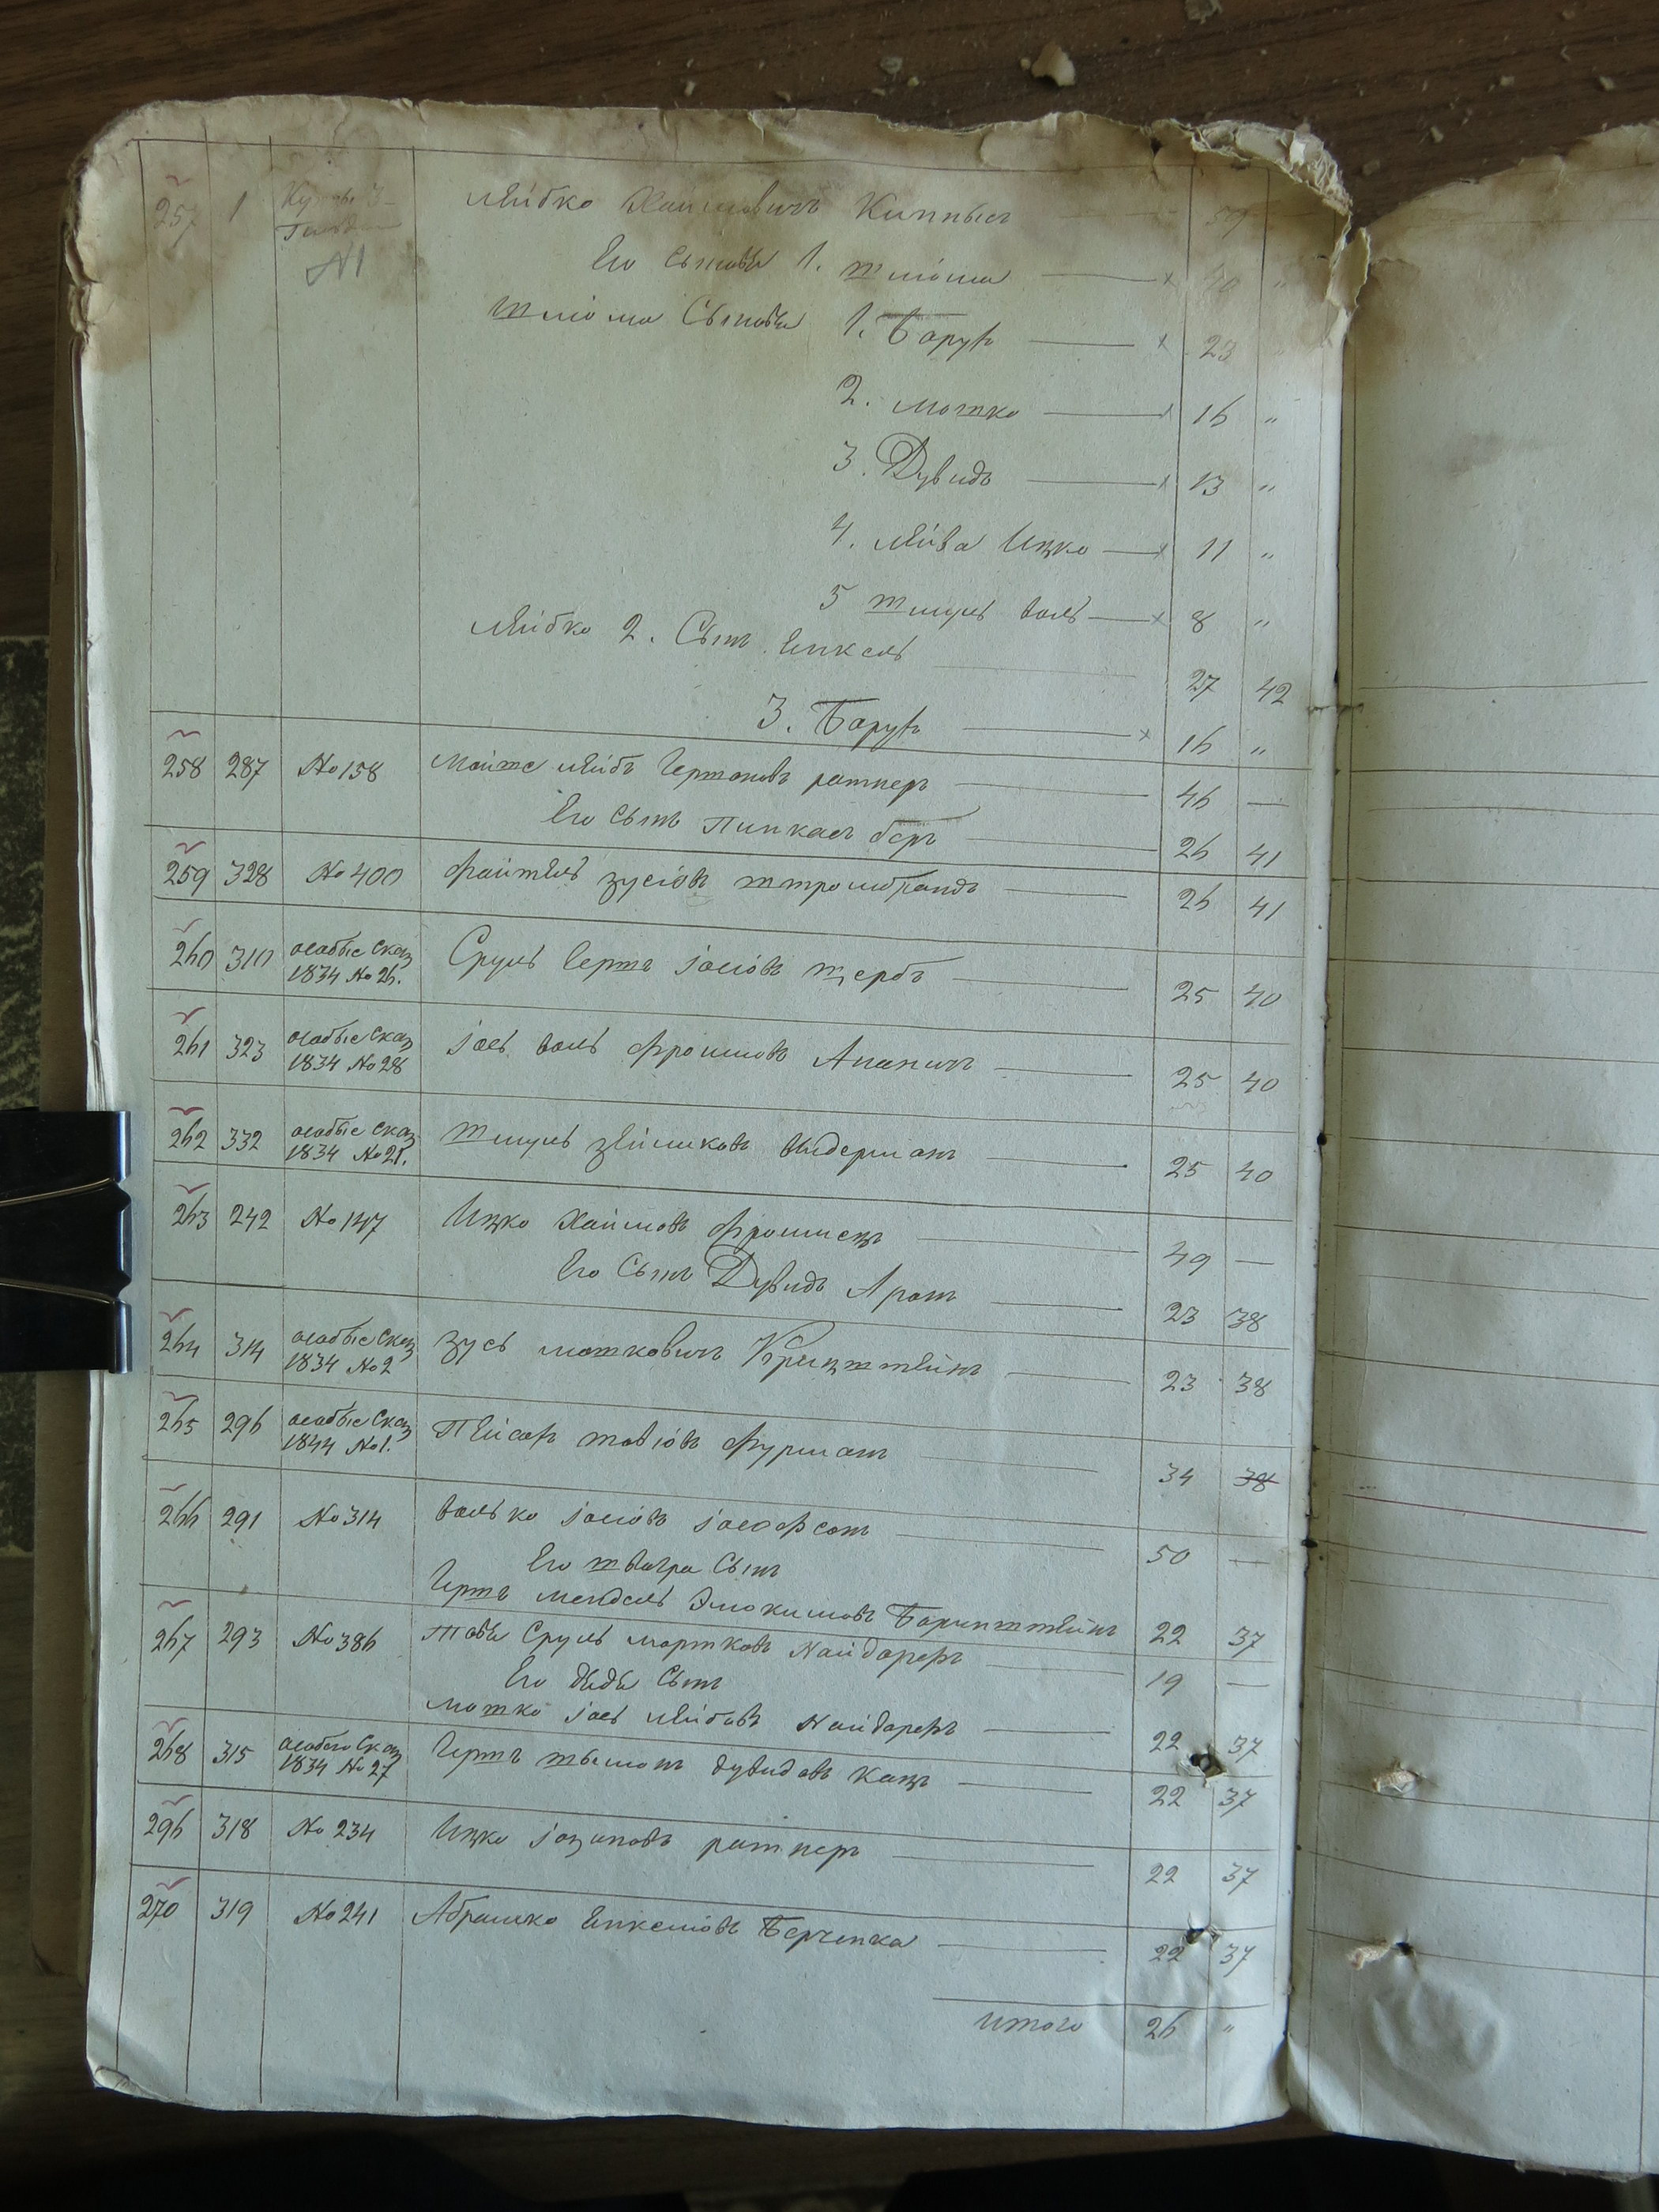 257 1 Купцы 3 Гильдии №1 Лейбко Хаимовичъ Кипнысъ 59
Его Сыновья 1. Шліома 40 "
Шліома Сыновья 1. Борухъ 23 "
2. Мошко 16 "
3. Дувидъ 13 "
4. Лейва Ицко 11 "
5 Шмуль Воль 8 "
Лейбко 2. Сынъ Янкель 27 42
3. Борухъ 16 "
258 287 №158 Мойше Лейбъ Гершоновъ Ратнеръ 46 —
Его Сынъ Пинкасъ Беръ 26 41
259 328 №400 Файтель Зусіовъ Штромбрандъ 26 41
260 310 особые Сказ 1834 №26. Сруль Гершъ Іосіовъ Щербъ 25 40
261 323 особые Сказ 1834 №28 Іось Воль Фроимовъ Ананичъ 25 40
262 332 особые Сказ 1834 №21. Шмуль Зейликовъ Видерманъ 25 40
263 242 №147 Ицко Хаимовъ Фроимецъ 49 —
Его Сынъ Дувидъ Аронъ 23 38
264 314 особые Сказ 1834 №2 Зусь Мошковичъ Крынштейнъ 23 38
265 296 особые Сказ 1844 №1. Пейсахъ Товіовъ Фурманъ 34 38
266 291 №314 Волько Іосіовъ Іософсонъ 50 —
Его Швагра Сынъ
Гершъ Мендель Эліокимовъ Боринштейнъ 22 37
267 293 №386 Товья Сруль Мортковъ Найдорфъ 19 —
Его Дяди Сынъ
Мошко Іось Лейбовъ Найдорфъ 22 37
268 315 особого Сказ 1834 №27 Гершъ Шымонъ Дувидовъ Кацъ 22 37
296 318 №234 Ицко Ратнеръ 22 37
270 319 №241 Абрамко Янкеліовъ Берченко 22 37
Итого 26 "